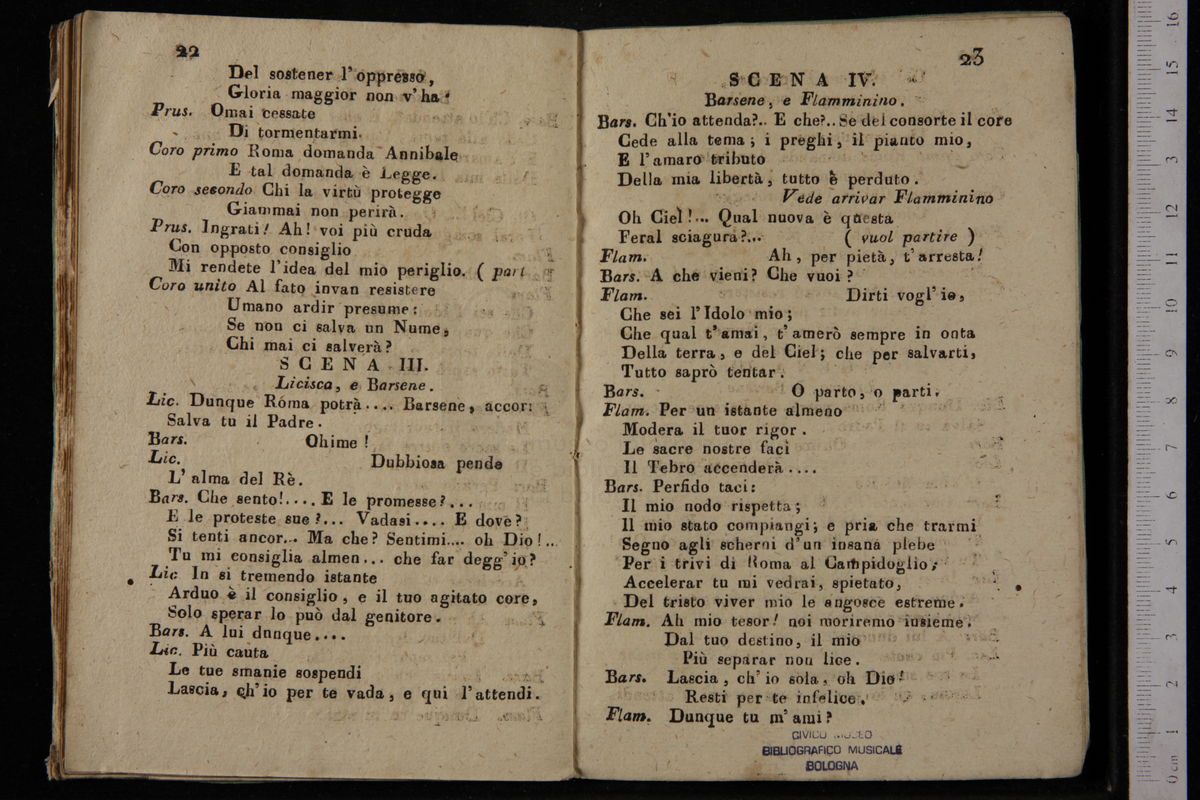 22
Del sostener l'oppresso,
Gloria maggior non v'ha.
Prus. Omai cessate
Di tormentarmi.
Coro primo Roma domanda Annibale
E tal domanda è Legge.
Coro secondo Chi la virtù protegge
Giammai non perirà.
Prus. Ingrati! Ah! voi più cruda
Con opposto consiglio
Mi rendete l'idea del mio periglio. ( part
Coro unito Al fato invan resistere
Umano ardir presume:
Se non ci salva un Nume,
Chi mai ci salverà?
SCENA III.
Licisca, e Barsene.
Lic. Dunque Róma potrà.... Barsene, accor:
Salva tu il Padre.
Bars. Ohime!
Lic. Dubbiosa pende
L'alma del Rè.
Bars. Che sento!.... E le promesse?...
E le proteste sue?... Vadasi.... E dove?
Si tenti ancor... Ma che? Sentimi.... oh Dio!...
Tu mi consiglia almen... che far degg'io?
Lic In si tremendo istante
Arduo è il consiglio, e il tuo agitato core,
Solo sperar lo può dal genitore.
Bars. A lui dunque....
Lic. Più cauta
Le tue smanie sospendi
Lascia, ch'io per te vada, e qui l'attendi.
23
SCENA IV.
Barsene, e Flamminino.
Bars. Ch'io attenda?.. E che?.. Se del consorte il core
Cede alla tema; i preghi, il pianto mio,
E l'amaro tributo
Della mia libertà, tutto è perduto.
Vede arrivar Flamminino
Oh Ciel!... Qual nuova è questa
Feral sciagura?... ( vuol partire )
Flam. Ah, per pietà, t'arresta!
Bars. A che vieni? Che vuoi?
Flam. Dirti vogl'io,
Che sei l'Idolo mio;
Che qual t'amai, t'amerò sempre in onta
Della terra, e del Ciel; che per salvarti,
Tutto saprò tentar.
Bars. O parto, o parti.
Flam. Per un istante almeno
Modera il tuor rigor.
Le sacre nostre faci
Il Tebro accenderà....
Bars. Perfido taci:
Il mio nodo rispetta;
Il mio stato compiangi; e pria che trarmi
Segno agli scherni d'un insana plebe
Per i trivi di Roma al Campidoglio;
Accelerar tu mi vedrai, spietato,
Del tristo viver mio le angosce estreme.
Flam. Ah mio tesor! noi moriremo insieme.
Dal tuo destino, il mio
Più separar non lice.
Bars. Lascia, ch'io sola, oh Dio!
Resti per te infelice.
Flam. Dunque tu m'ami?
CIVICO MUSEO
BIBLIOGRAFICO MUSICALE
BOLOGNA
0 cm 1 2 3 4 5 6 7 8 9 10 11 12 13 14 15 16